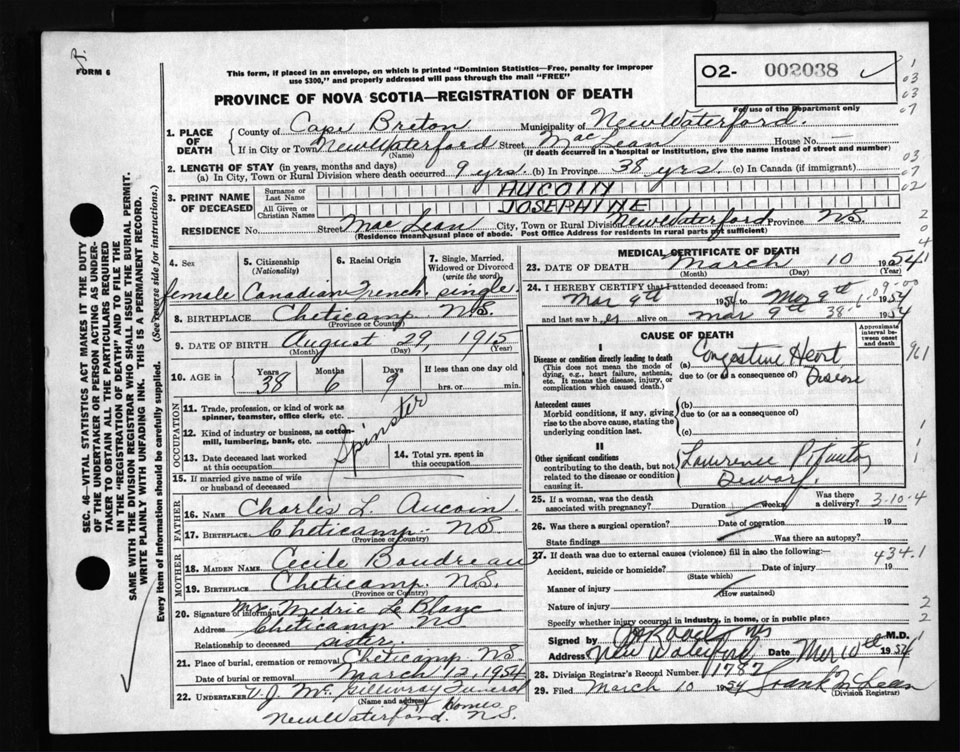 FORM 6
This form, if placed in an envelope, on which is printed "Dominion Statistics—Free, penalty for improper
use $300," and properly addressed will pass through the mail "FREE"
O2- 002038
For use of the Department only
PROVINCE OF NOVA SCOTIA—REGISTRATION OF DEATH
1. PLACE OF DEATH
County of Cape Breton Municipality of New Waterford.
If in City or Town New Waterford Street MacLean House No. —
(Name) (If death occurred in a hospital or institution, give the name instead of street and number)
2. LENGTH OF STAY (in years, months and days)
(a) In City, Town or Rural Division where death occurred 9 yrs. (b) In Province 38 yrs. (c) In Canada (if immigrant)
3. PRINT NAME OF DECEASED
Surname or Last Name AUCOIN
All Given or Christian Names JOSEPHINE
RESIDENCE No. Street MacLean City, Town or Rural Division New Waterford Province N.S.
(Residence means usual place of abode. Post Office Address for residents in rural parts not sufficient)
4. Sex
female
5. Citizenship (Nationality)
Canadian
6. Racial Origin
French.
7. Single, Married, Widowed or Divorced (write the word)
single.
8. BIRTHPLACE Cheticamp N.S.
(Province or Country)
9. DATE OF BIRTH August 29, 1915
(Month) (Day) (Year)
10. AGE in
Years Months Days If less than one day old
38 6 9 hrs. or min.
OCCUPATION
11. Trade, profession, or kind of work as spinner, teamster, office clerk, etc.
12. Kind of industry or business, as cotton-mill, lumbering, bank, etc.
Spinster
13. Date deceased last worked at this occupation
14. Total yrs. spent in this occupation
15. If married give name of wife or husband of deceased
FATHER
16. Name Charles L. Aucoin.
17. Birthplace Cheticamp N.S.
(Province or Country)
MOTHER
18. MAIDEN NAME Cecile Boudreau
19. BIRTHPLACE Cheticamp. N.S.
(Province or Country)
20. Signature of informant Mrs. Medric LeBlanc
Address Cheticamp NS
Relationship to deceased sister.
21. Place of burial, cremation or removal Cheticamp N.S
Date of burial or removal March 12, 1954
22. UNDERTAKER V.J. Mc Gillivray Funeral
(Name and address) Homes
New Waterford. N.S.
MEDICAL CERTIFICATE OF DEATH
23. DATE OF DEATH March 10 1954
(Month) (Day) (Year)
24. I HEREBY CERTIFY that I attended deceased from:
Mar 9th 1954 to Mar 9th 1954
and last saw her alive on Mar 9th 1954
CAUSE OF DEATH
Approximate interval between onset and death
I
Disease or condition directly leading to death
(This does not mean the mode of dying, e.g., heart failure, asthenia, etc. It means the disease, injury, or complication which caused death.)
(a) Congestive Heart
due to (or as a consequence of) Disease
Antecedent causes
Morbid conditions, if any, giving rise to the above cause, stating the underlying condition last.
(b)
due to (or as a consequence of)
(c)
II
Other significant conditions contributing to the death, but not related to the disease or condition causing it.
Dwarf.
25. If a woman, was the death associated with pregnancy? Duration weeks Was there a delivery?
3-10-4
26. Was there a surgical operation? Date of operation 19
State findings Was there an autopsy?
27. If death was due to external causes (violence) fill in also the following:—
434.1
Accident, suicide or homicide? Date of injury 19
(State which)
Manner of injury
(How sustained)
Nature of injury
Specify whether injury occurred in industry, in home, or in public place
Signed by M.D.
Address New Waterford Date Mar 10th 1954
28. Division Registrar's Record Number 1787
29. Filed March 10 1954 Frank McLean
(Division Registrar)
SEC. 46—VITAL STATISTICS ACT MAKES IT THE DUTY
OF THE UNDERTAKER OR PERSON ACTING AS UNDERTAKER TO OBTAIN ALL THE PARTICULARS REQUIRED
IN THE "REGISTRATION OF DEATH" AND TO FILE THE
SAME WITH THE DIVISION REGISTRAR WHO SHALL ISSUE THE BURIAL PERMIT.
WRITE PLAINLY WITH UNFADING INK. THIS IS A PERMANENT RECORD.
Every item of Information should be carefully supplied. (See reverse side for instructions.)